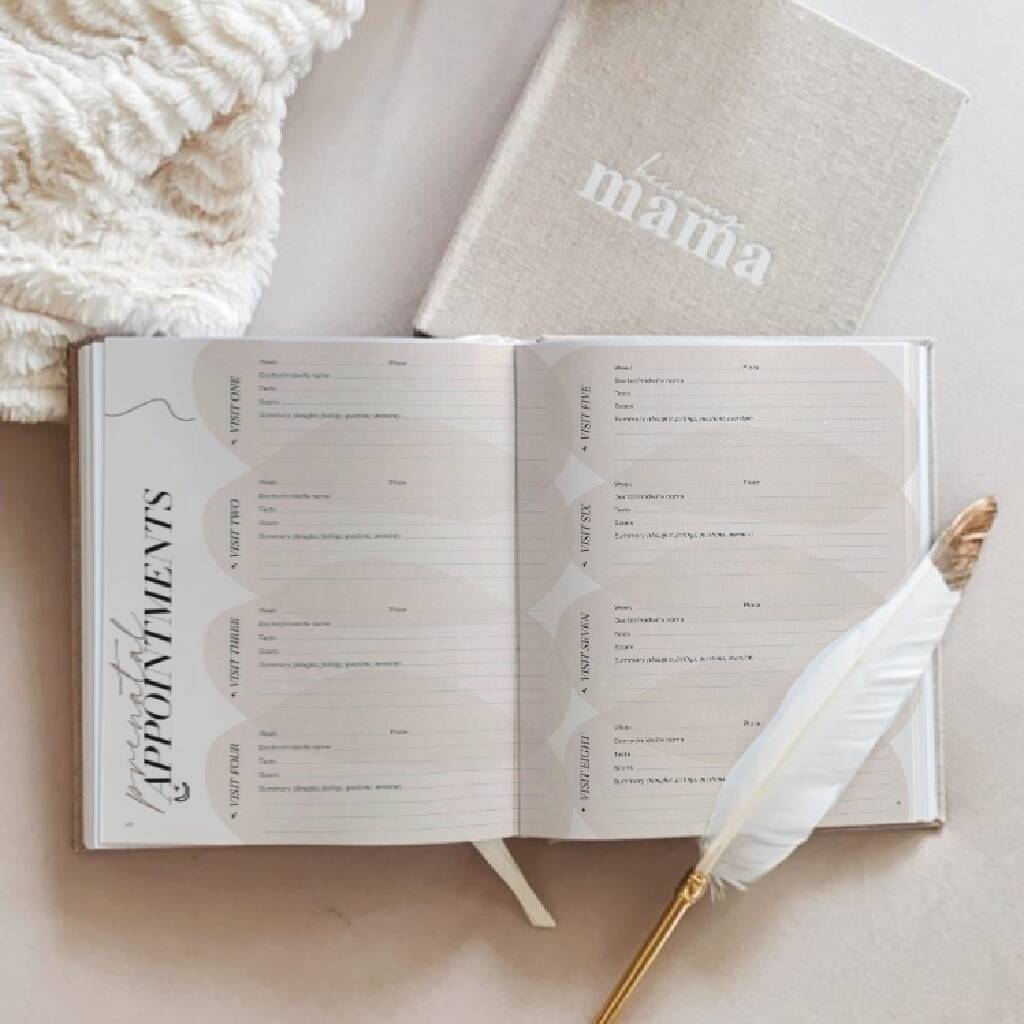 mama
prenatal
APPOINTMENTS
VISIT ONE
Week Place
Doctor/midwife name
Tests
Scans
Summary (thoughts, feelings, questions, memories)
VISIT TWO
Week Place
Doctor/midwife name
Tests
Scans
Summary (thoughts, feelings, questions, memories)
VISIT THREE
Week Place
Doctor/midwife name
Tests
Scans
Summary (thoughts, feelings, questions, memories)
VISIT FOUR
Week Place
Doctor/midwife name
Tests
Scans
Summary (thoughts, feelings, questions, memories)
VISIT FIVE
Week Place
Doctor/midwife name
Tests
Scans
Summary (thoughts, feelings, questions, memories)
VISIT SIX
Week Place
Doctor/midwife name
Tests
Scans
Summary (thoughts, feelings, questions, memories)
VISIT SEVEN
Week Place
Doctor/midwife name
Tests
Scans
Summary (thoughts, feelings, questions, memories)
VISIT EIGHT
Week Place
Doctor/midwife name
Tests
Scans
Summary (thoughts, feelings, questions,